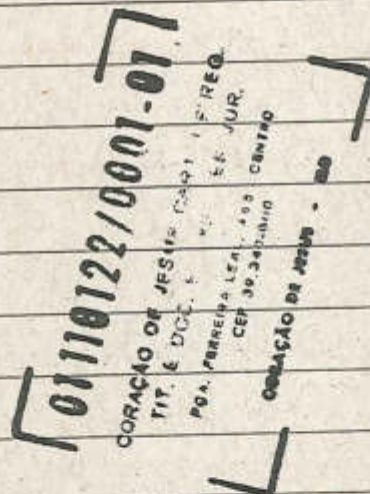 01110122/0001-01
CORAÇÃO DE JESUS CART REG
TIT. E DOC. JUR.
PÇA. FERREIRA LEAL, CENTRO
CEP 39.340-000
CORAÇÃO DE JESUS - MG